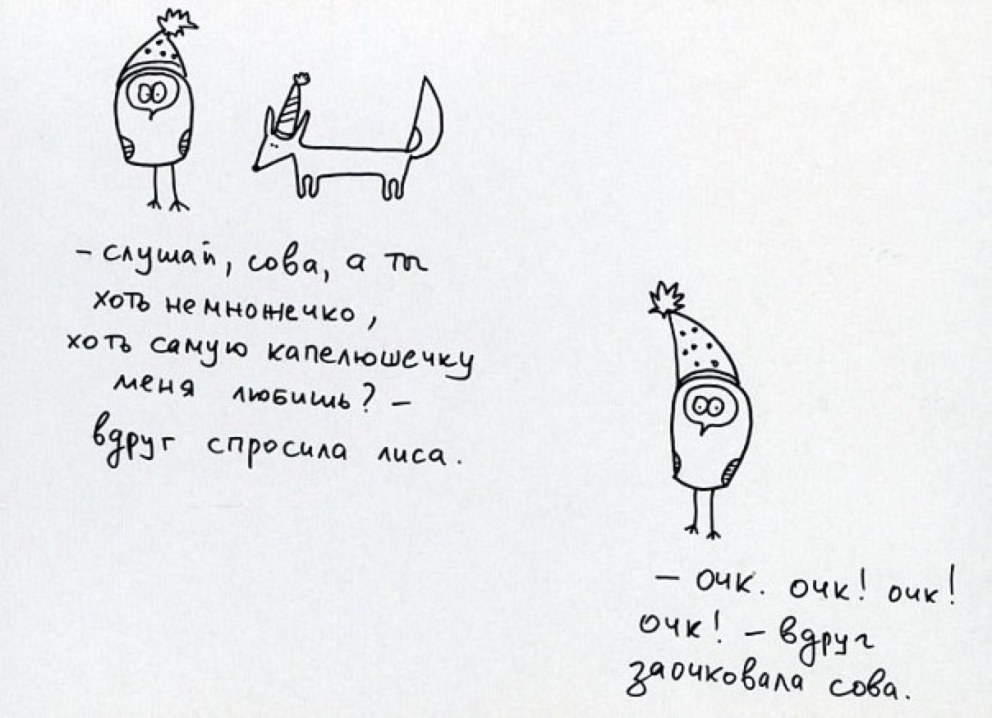 - слушай, сова, а ты
хоть немножечко,
хоть самую капелюшечку
меня любишь? -
вдруг спросила лиса.
- очк. очк! очк!
очк! - вдруг
заочковала сова.